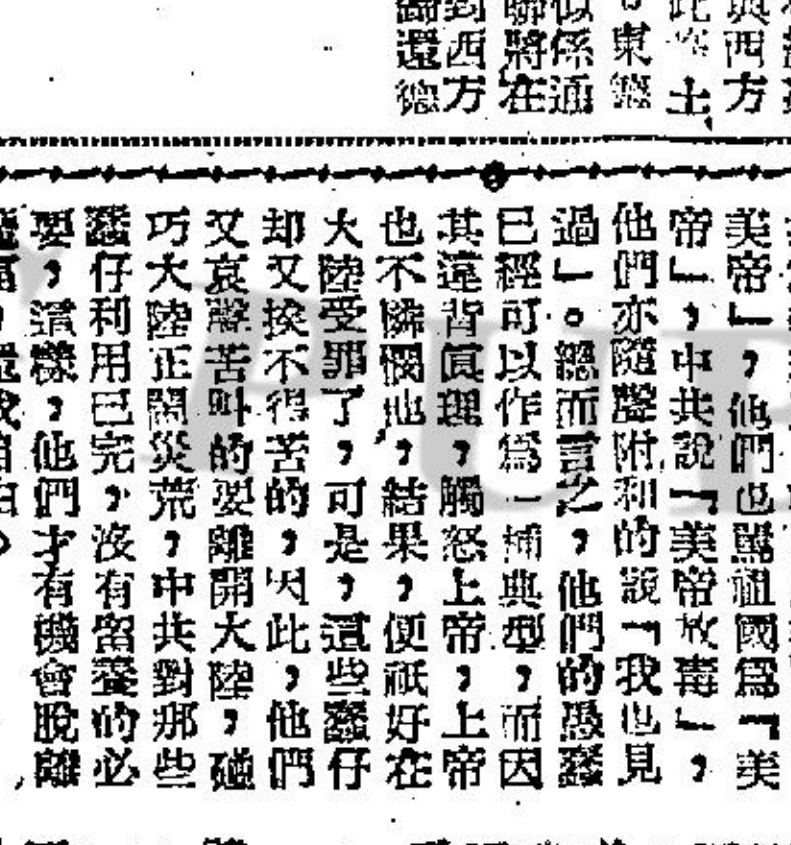 與西方
此 土
東
似係通
聯將在
到西方
歸還德
美帝」，他們也罵祖國爲「美
帝」，中共說「美帝放毒」，
他們亦隨聲附和的說「我也見
過」。總而言之，他們的愚蠢
已經可以作爲一 典型，而因
其違背眞理，觸怒上帝，上帝
也不憐憫他，結果，便祇好在
大陸受罪了，可是，這些蠢仔
却又挨不得苦的，因此，他們
又哀聲苦叫的要離開大陸，碰
巧大陸正鬧災荒，中共對那些
蠢仔利用已完，沒有留養的必
要，這樣，他們才有機會脫離
PUE